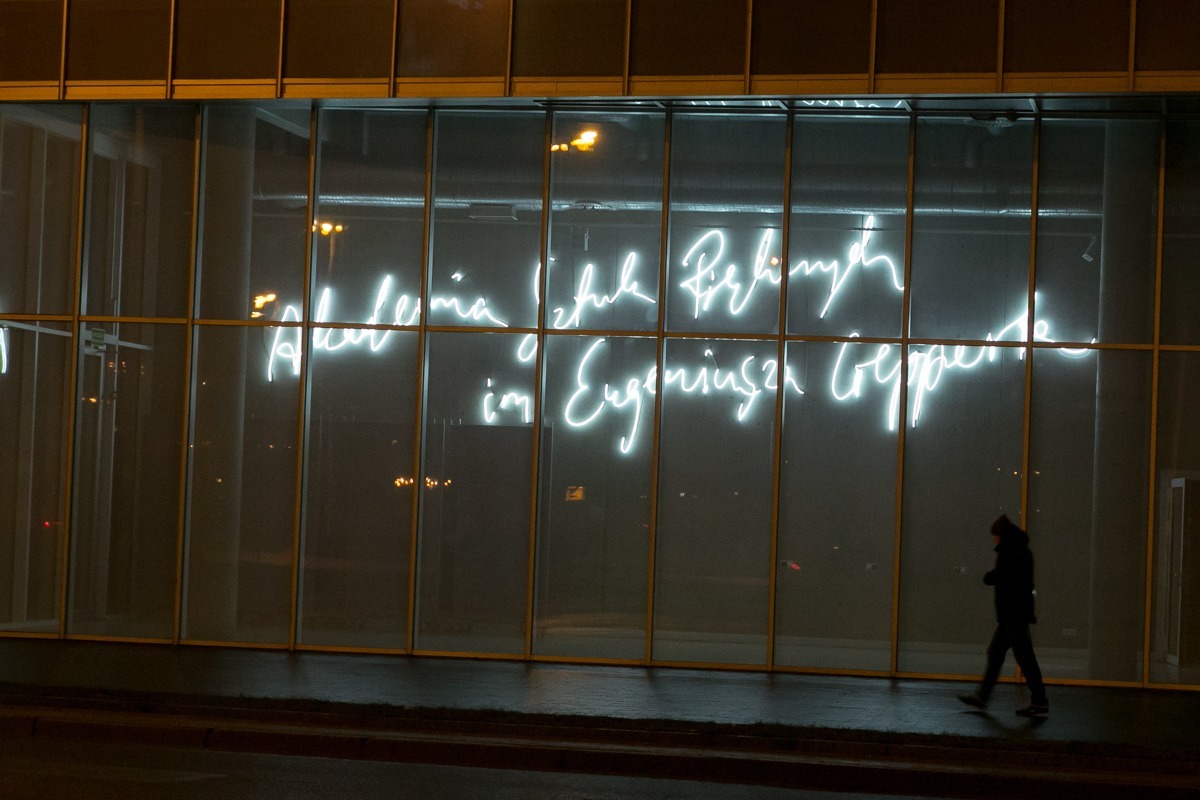 Akademia Sztuk Pięknych
im Eugeniusza Gepperta